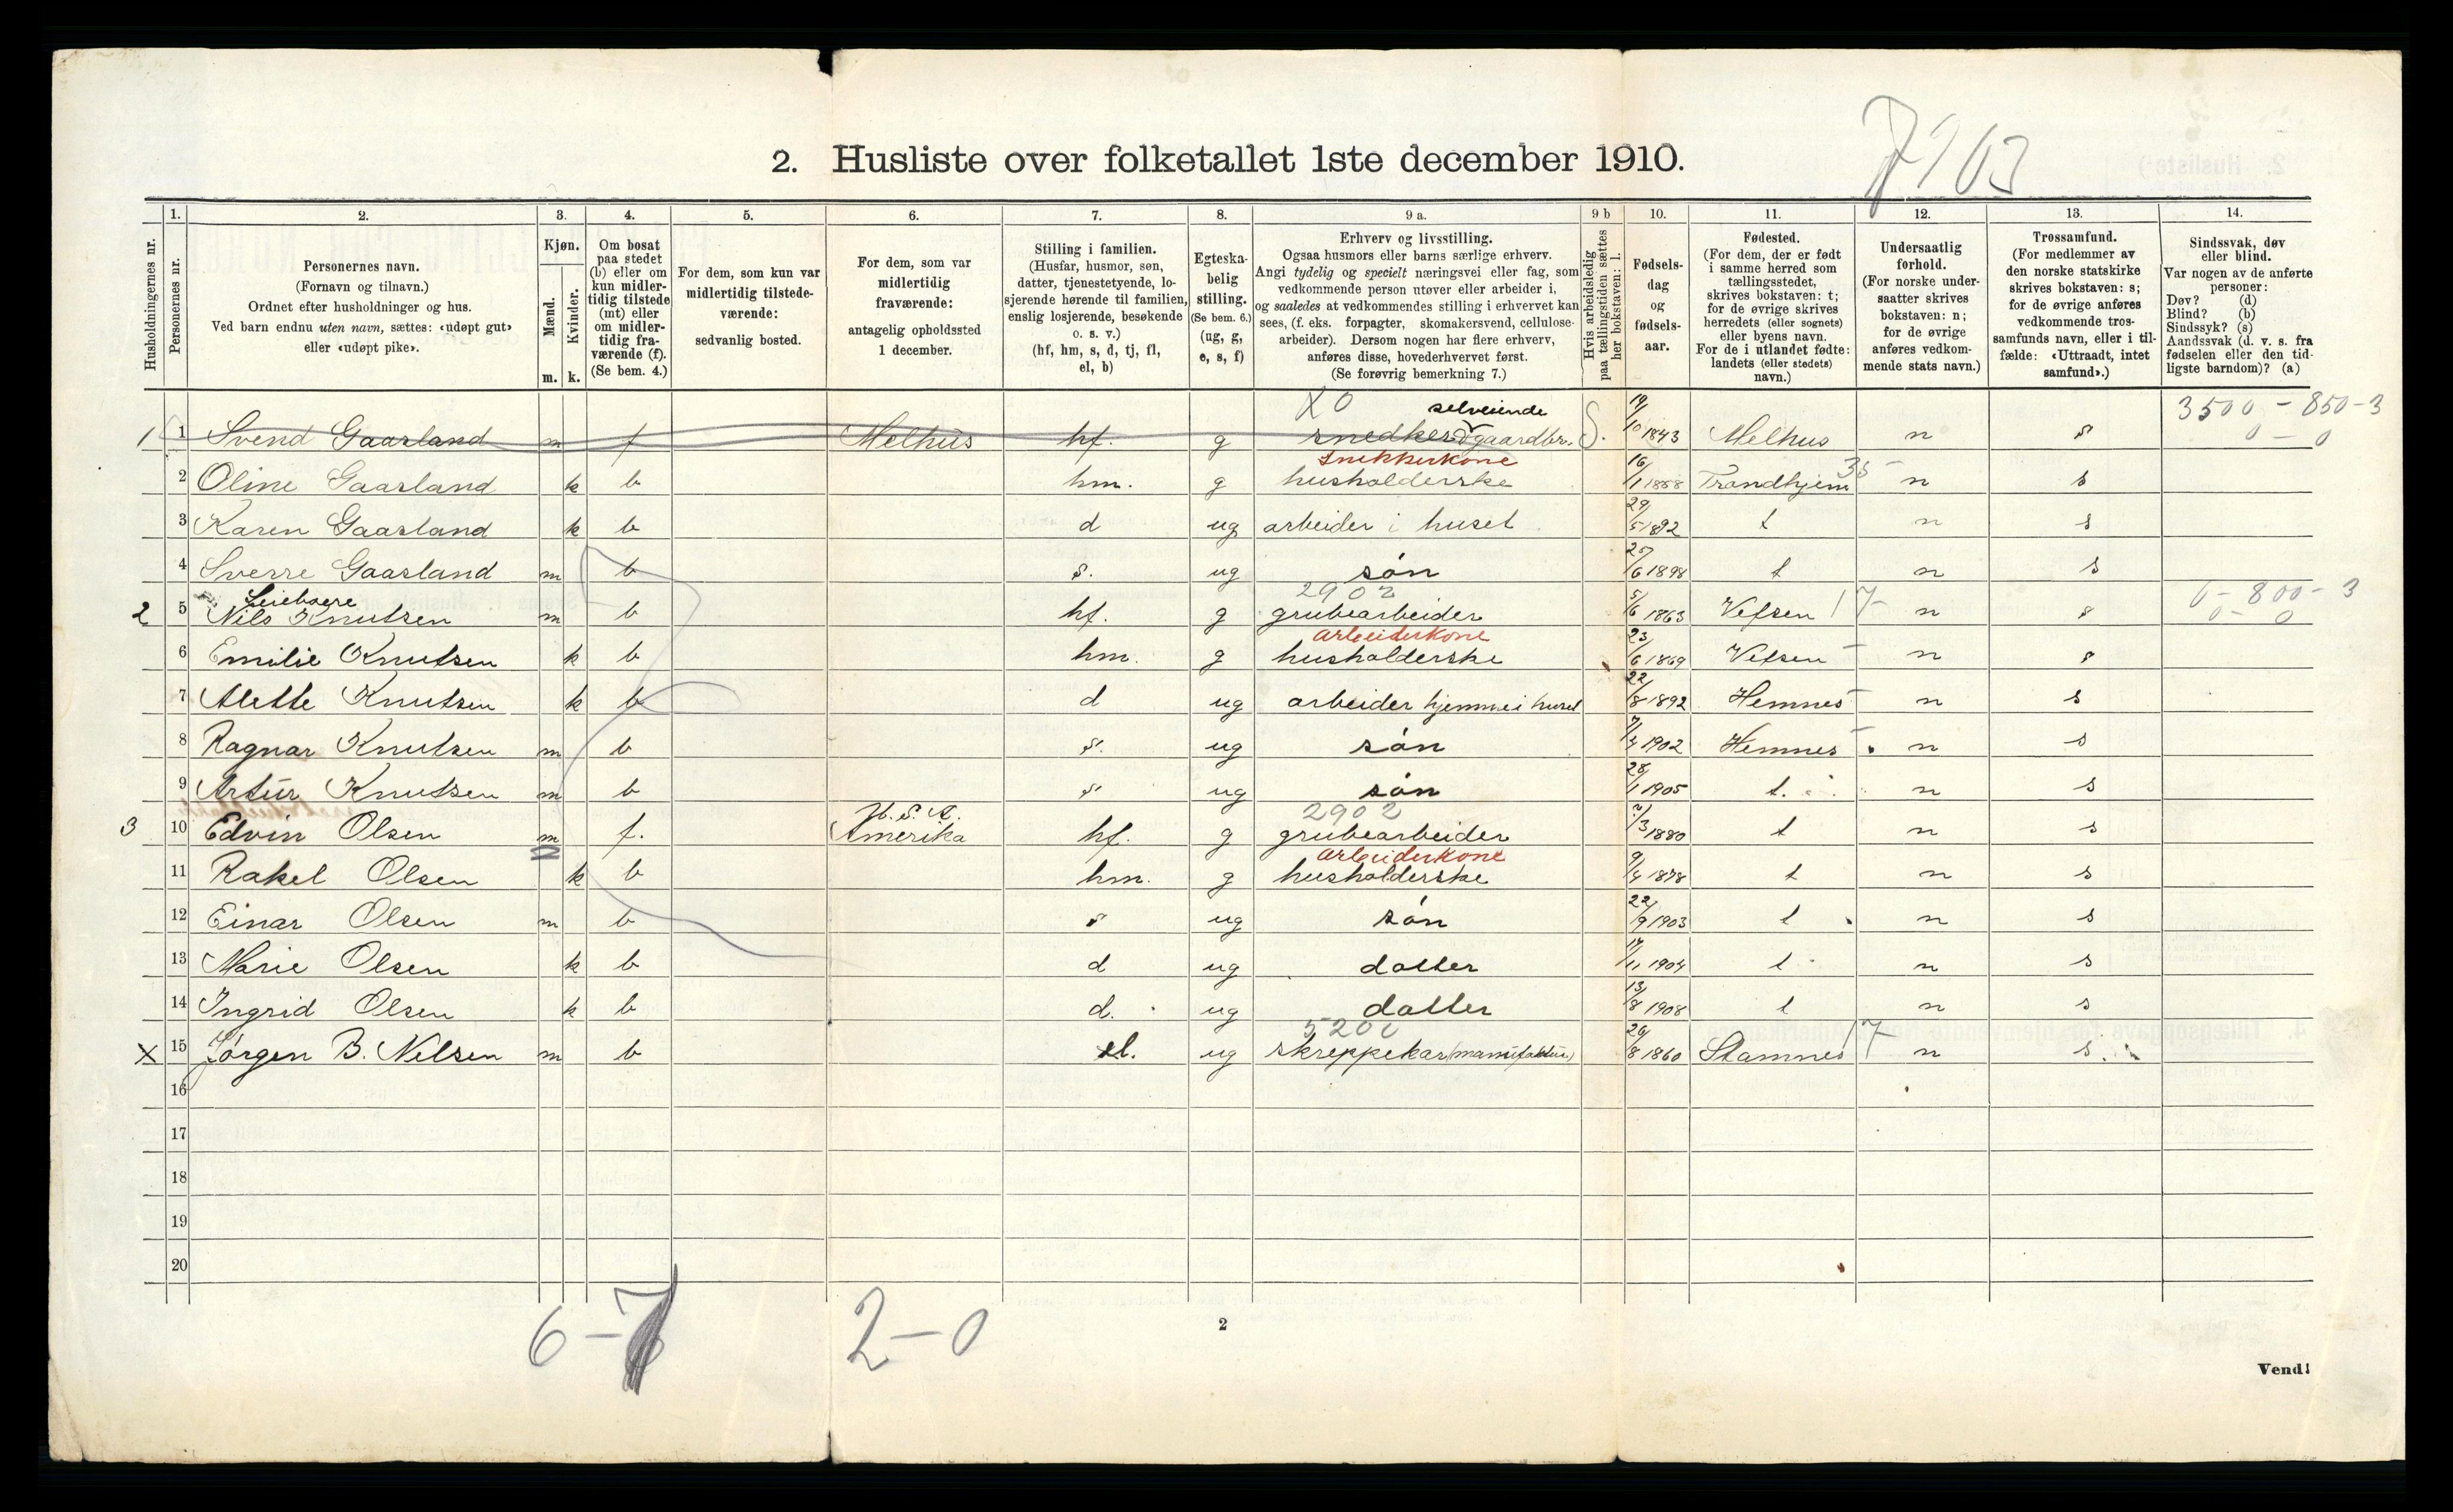 2. Husliste over folketallet 1ste december 1910.
Husholdningernes nr.
1. Personernes nr.
2. Personernes navn. (Fornavn og tilnavn.) Ordnet efter husholdninger og hus. Ved barn endnu uten navn, sættes: «udøpt gut» eller «udøpt pike».
3. Kjøn. Mænd. m. Kvinder. k.
4. Om bosat paa stedet (b) eller om kun midlertidig tilstede (mt) eller om midlertidig fraværende (f). (Se bem. 4.)
5. For dem, som kun var midlertidig tilstedeværende: sedvanlig bosted.
6. For dem, som var midlertidig fraværende: antagelig opholdssted 1 december.
7. Stilling i familien. (Husfar, husmor, søn, datter, tjenestetyende, losjerende hørende til familien, enslig losjerende, besøkende o. s. v.) (hf, hm, s, d, tj, fl, el, b)
8. Egteskabelig stilling. (Se bem. 6.) (ug, g, e, s, f)
9 a. Erhverv og livsstilling. Ogsaa husmors eller barns særlige erhverv. Angi tydelig og specielt næringsvei eller fag, som vedkommende person utøver eller arbeider i, og saaledes at vedkommendes stilling i erhvervet kan sees, (f. eks. forpagter, skomakersvend, cellulose-arbeider). Dersom nogen har flere erhverv, anføres disse, hovederhvervet først. (Se forøvrig bemerkning 7.)
9 b Hvis arbeidsledig paa tællingstiden sættes her bokstaven: l.
10. Fødselsdag og fødselsaar.
11. Fødested. (For dem, der er født i samme herred som tællingsstedet, skrives bokstaven: t; for de øvrige skrives herredets (eller sognets) eller byens navn. For de i utlandet fødte: landets (eller stedets) navn.)
12. Undersaatlig forhold. (For norske undersaatter skrives bokstaven: n; for de øvrige anføres vedkommende stats navn.)
13. Trossamfund. (For medlemmer av den norske statskirke skrives bokstaven: s; for de øvrige anføres vedkommende trossamfunds navn, eller i tilfælde: «Uttraadt, intet samfund».)
14. Sindssvak, døv eller blind. Var nogen av de anførte personer: Døv? (d) Blind? (b) Sindssyk? (s) Aandssvak (d. v. s. fra fødselen eller den tidligste barndom)? (a)
X0 selveiende 3500 - 850-3
1 1 Svend Gaarland m f Melhus hf. g snedker & gaardbr. S. 19/10 1843 Melhus n s 0 - 0
Snikkerkone 35
2 Oline Gaarland k b hm. g husholderske 16/1 1858 Trondhjem n s
3 Karen Gaarland k b d ug arbeider i huset 29/5 1892 t n s
4 Sverre Gaarland m b s. ug søn 27/6 1898 t n s
Leieboere 2902 0-800-3
2 5 Nils Knutsen m b hf. g grubearbeider 5/6 1863 Vefsen 17 n s 0-0
arbeiderkone
6 Emilie Knutsen k b hm. g husholderske 23/6 1869 Vefsen n s
7 Alette Knutsen k b d ug arbeider hjemme i huset 22/8 1892 Hemnes n s
8 Ragnar Knutsen m b s. ug søn 7/4 1902 Hemnes n s
9 Artur Knutsen m b s ug søn 28/1 1905 t. n s
U.S.A. 2902
3 10 Edvin Olsen m f. Amerika hf. g grubearbeider 7/3 1880 t n s
arbeiderkone
11 Rakel Olsen k b hm. g husholderske 9/4 1878 t n s
12 Einar Olsen m b s ug søn 22/9 1903 t n s
13 Marie Olsen k b d ug datter 17/11 1904 t n s
14 Ingrid Olsen k b d. ug datter 13/8 1908 t n s
5200
X 15 Jørgen B. Nilsen m b el. ug skreppekar (manufaktur) 29/8 1860 Stamnes 17 n s.
16
17
18
19
20
6 - 7 2 - 0
2
Vend!